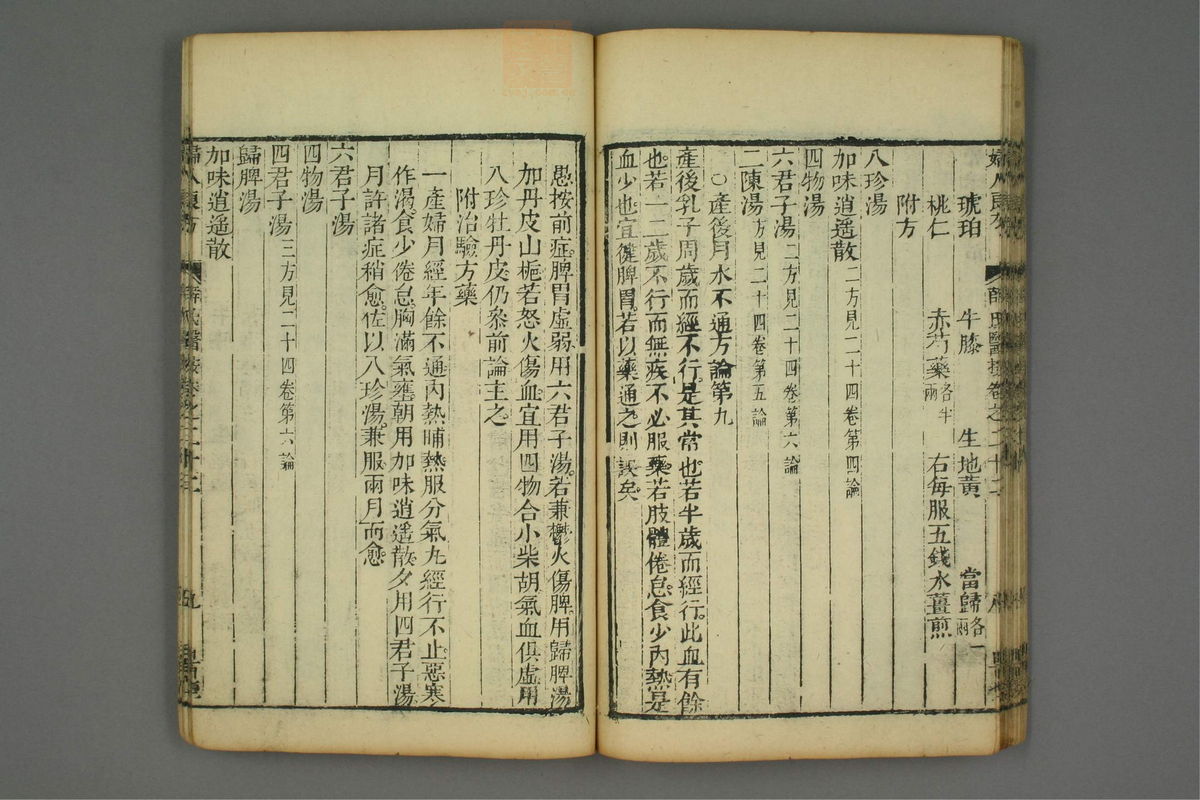 琥珀　牛膝　生地黃　當歸各一兩
桃仁　赤芍藥各半兩　右每服五錢水薑煎
附方
八珍湯
加味逍遙散二方見二十四卷第四論
四物湯
六君子湯二方見二十四卷第六論
二陳湯方見二十四卷第五論
○產後月水不通方論第九
產後乳子周歲而經不行。是其常也若半歲而經行。此血有餘
也。若一二歲不行而無疾不必服藥若肢體倦怠。食少內熱。是
血少也宜健脾胃。若以藥通之。則誤矣。
愚按前症。脾胃虛弱用六君子湯。若兼鬱火傷脾。用歸脾湯
加丹皮山梔若怒火傷血宜用四物合小柴胡氣血俱虛。用
八珍牡丹皮仍叅前論主之。
附治驗方藥
一產婦月經年餘不通內熱晡熱服分氣丸經行不止惡寒
作渴。食少倦怠。胸滿氣壅。朝用加味逍遙散。夕用四君子湯。
月許諸症稍愈。佐以八珍湯。兼服兩月而愈
六君子湯
四物湯
四君子湯三方見二十四卷第六論
歸脾湯
加味逍遙散